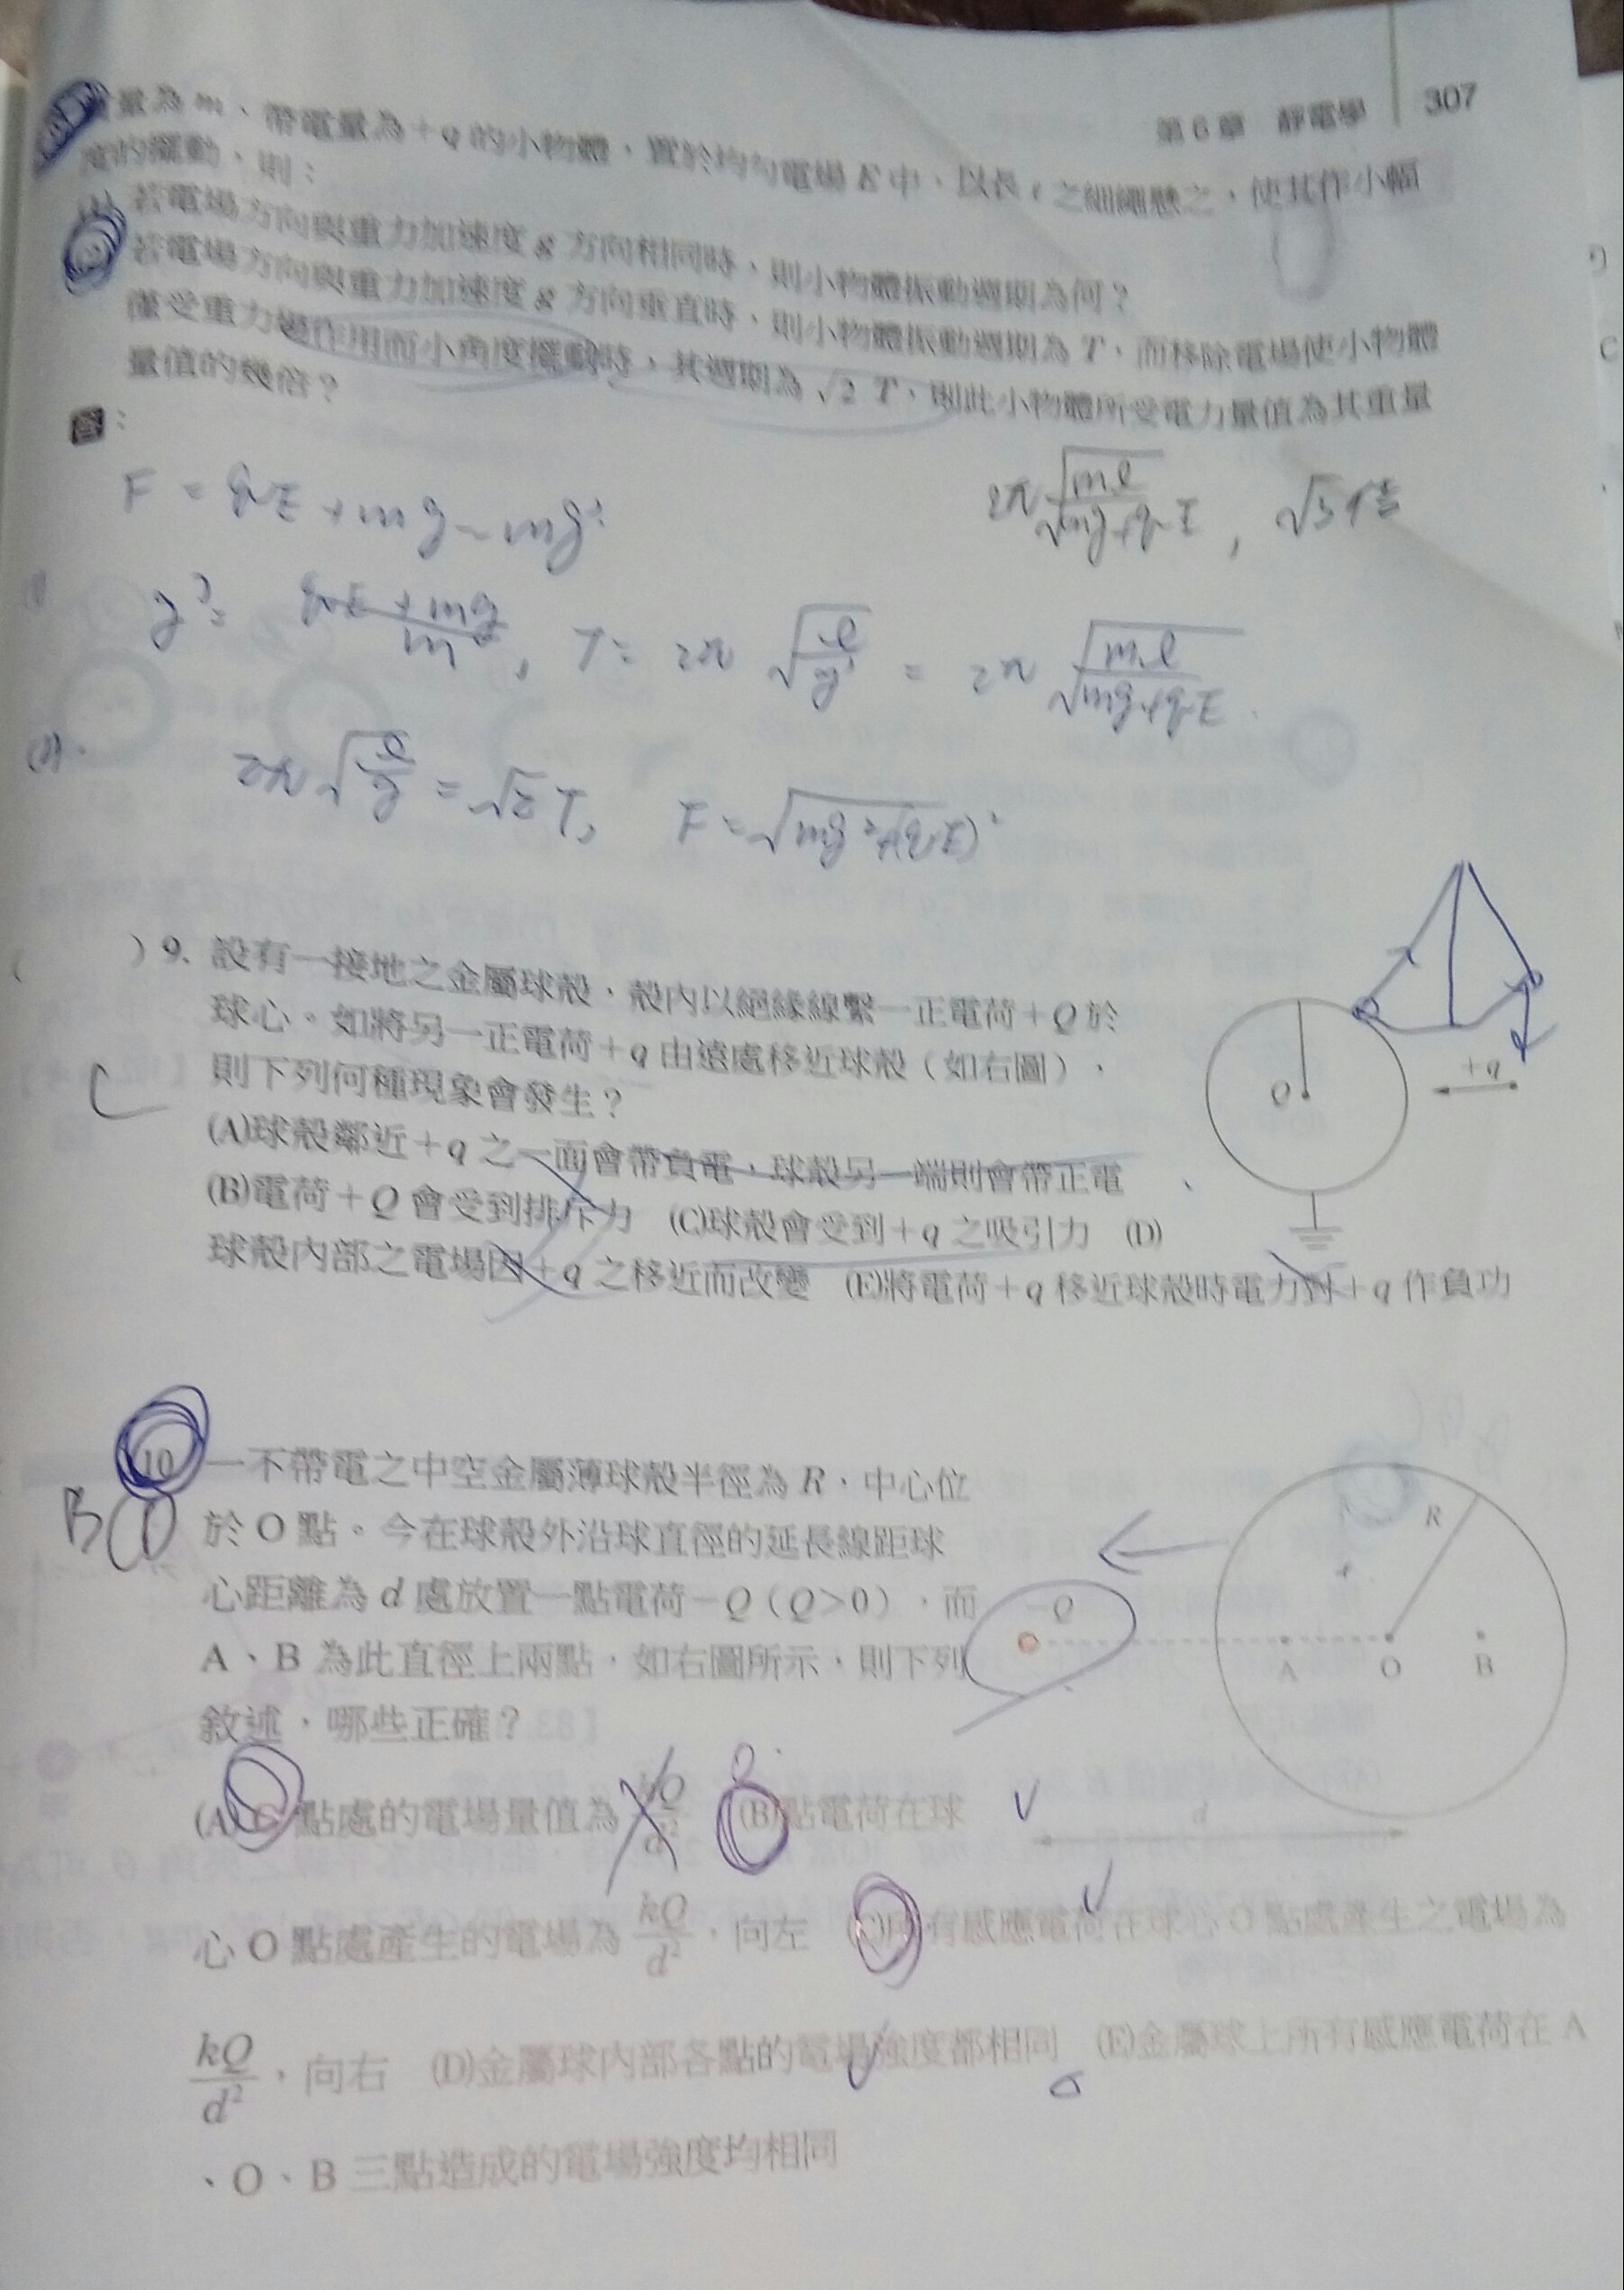 第6章 靜電學 307
量為 m、帶電量為+q 的小物體，置於均勻電場 E 中，以長 ℓ 之細繩懸之，使其作小幅
度的擺動，則：
(1) 若電場方向與重力加速度 g 方向相同時，則小物體振動週期為何？
若電場方向與重力加速度 g 方向垂直時，則小物體振動週期為 T，而移除電場使小物體
僅受重力 作用而小角度擺動時，其週期為 √2 T，則此小物體所受電力量值為其重量
量值的幾倍？
答：
F = qE + mg = mg'
2π √(mℓ) / √(mg+qE) , √3倍
g' = (qE + mg)/m , T = 2π √(ℓ/g') = 2π √(mℓ) / √(mg+qE)
(2). 2π √(ℓ/g) = √2 T, F = √(mg²+(qE)²
C
( ) 9. 設有一接地之金屬球殼，殼內以絕緣線繫一正電荷+Q 於
球心。如將另一正電荷+q 由遠處移近球殼（如右圖），
則下列何種現象會發生？
(A)球殼鄰近+q 之一面會帶負電，球殼另一端則會帶正電
(B)電荷+Q 會受到排斥力 (C)球殼會受到+q 之吸引力 (D)
球殼內部之電場因+q 之移近而改變 (E)將電荷+q 移近球殼時電力對+q 作負功
Q
+q
10 一不帶電之中空金屬薄球殼半徑為 R，中心位
於 O 點。今在球殼外沿球直徑的延長線距球
心距離為 d 處放置一點電荷−Q（Q>0），而
A、B 為此直徑上兩點，如右圖所示，則下列
敘述，哪些正確？
(A) O 點處的電場量值為 kQ/d² (B)點電荷在球
心 O 點處產生的電場為 kQ/d²，向左 (C)所有感應電荷在球心 O 點處產生之電場為
kQ/d²，向右 (D)金屬球內部各點的電場強度都相同 (E)金屬球上所有感應電荷在 A
、O、B 三點造成的電場強度均相同
R
−Q
A O B
d